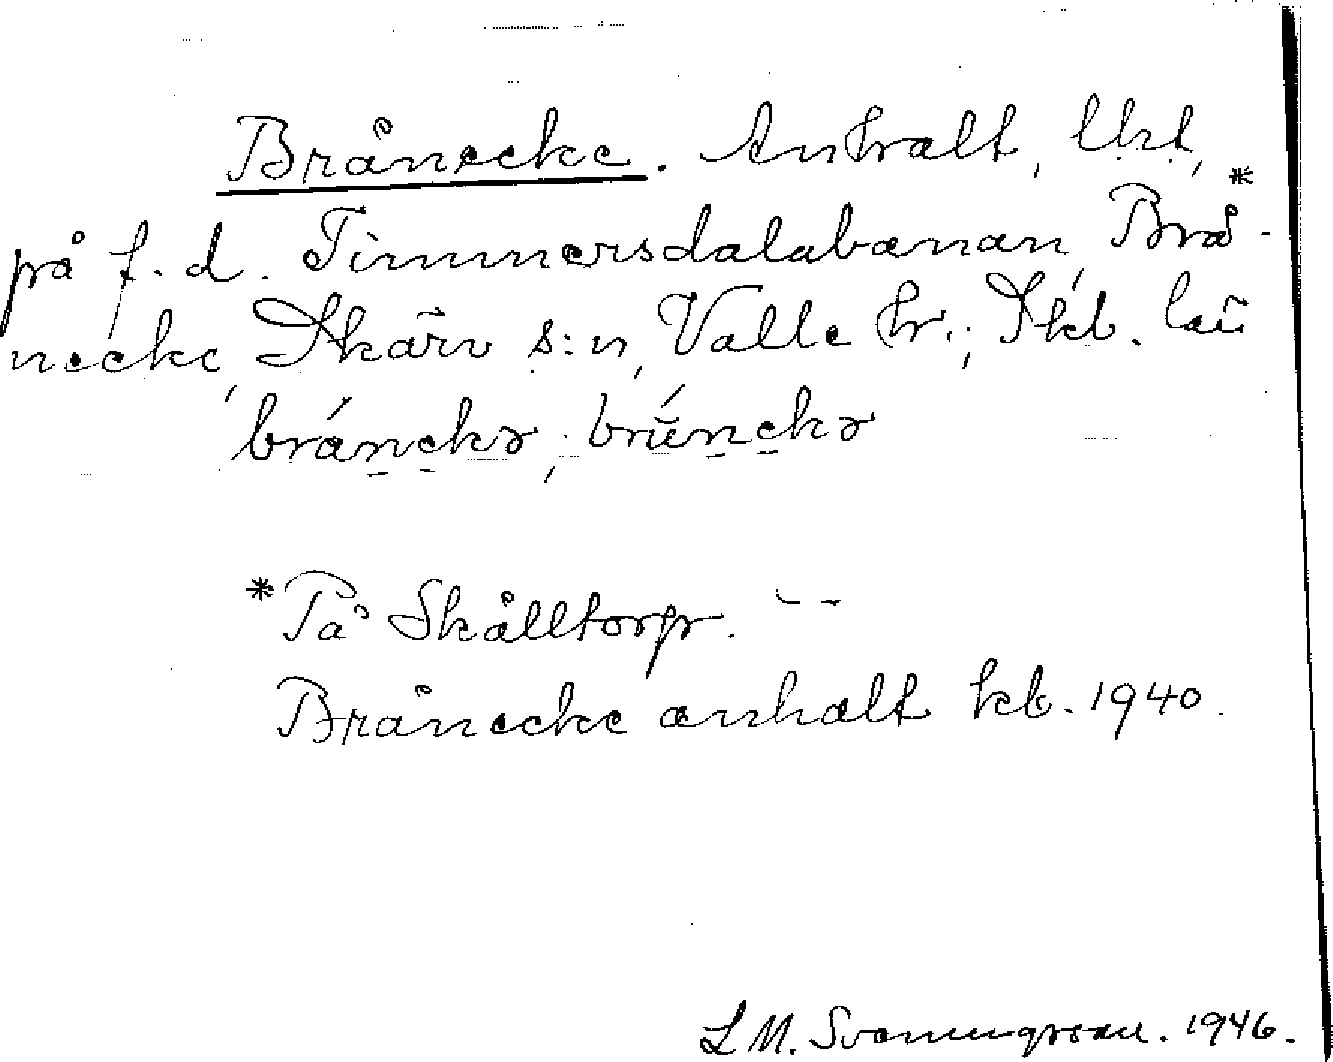 Brånecke. Anhalt, Ukt,
på f. d. Timmersdalabanan, Brå-*
necke, Skärv s:n, Valle hr.; Skb. län
bránckə, brúnckə
*På Skålltorp. --
Brånecke anhalt kb. 1940.
L M. Svanungsson. 1946.